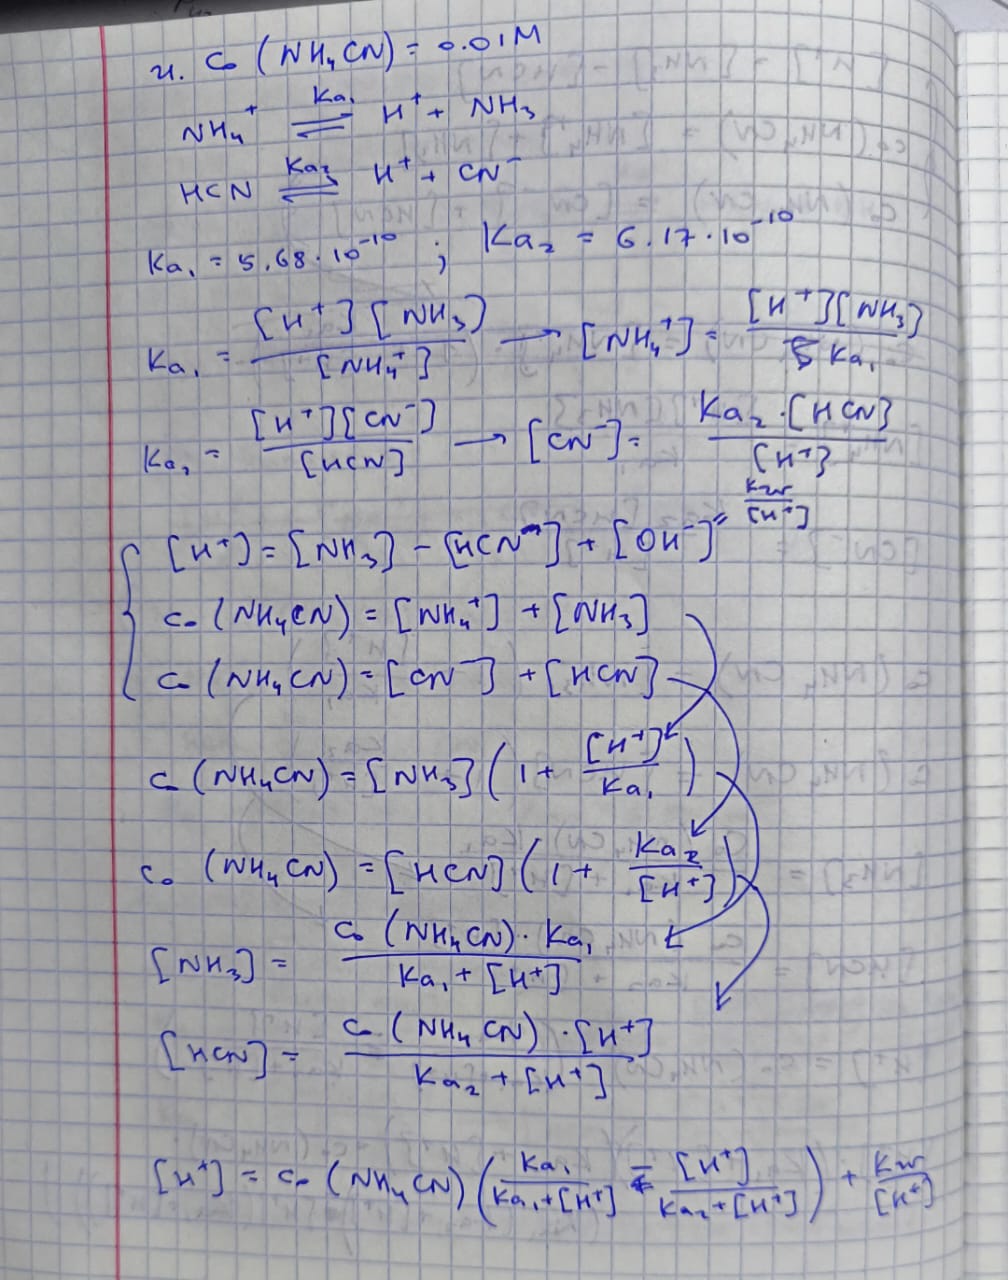 и. C₀ (NH₄CN) = 0.01M
NH₄⁺ ⇌ (Ka₁) H⁺ + NH₃
HCN ⇌ (Ka₂) H⁺ + CN⁻
Ka₁ = 5.68·10⁻¹⁰ ; Ka₂ = 6.17·10⁻¹⁰
Ka₁ = [H⁺][NH₃] / [NH₄⁺] → [NH₄⁺] = [H⁺][NH₃] / Ka₁
Ka₂ = [H⁺][CN⁻] / [HCN] → [CN⁻] = Ka₂·[HCN] / [H⁺]
[H⁺] = [NH₃] - [HCN] + [OH⁻] = Kw / [H⁺]
C₀ (NH₄CN) = [NH₄⁺] + [NH₃]
C₀ (NH₄CN) = [CN⁻] + [HCN]
C₀ (NH₄CN) = [NH₃] (1 + [H⁺] / Ka₁)
C₀ (NH₄CN) = [HCN] (1 + Ka₂ / [H⁺])
[NH₃] = C₀ (NH₄CN)·Ka₁ / Ka₁ + [H⁺]
[HCN] = C₀ (NH₄CN)·[H⁺] / Ka₂ + [H⁺]
[H⁺] = C₀ (NH₄CN) (Ka₁ / Ka₁ + [H⁺] - [H⁺] / Ka₂ + [H⁺]) + Kw / [H⁺]